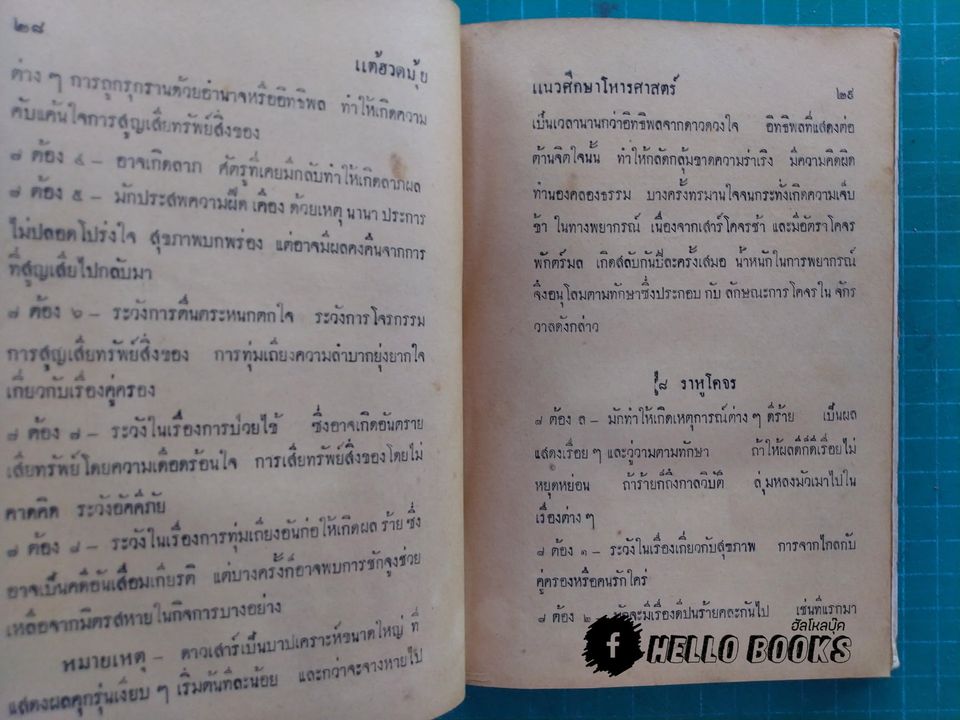 ๒๘
แต้ฮวดมุ้ย
ต่าง ๆ การถูกรุกรานด้วยอำนาจหรืออิทธิพล ทำให้เกิดความ
คับแค้นใจการสูญเสียทรัพย์สิ่งของ
๗ ต้อง ๔ – อาจเกิดลาภ ศัตรูที่เคยมีกลับทำให้เกิดลาภผล
๗ ต้อง ๕ – มักประสพความฝืดเคือง ด้วยเหตุ นานา ประการ
ไม่ปลอดโปร่งใจ สุขภาพบกพร่อง แต่อาจมีผลคงคืนจากการ
ที่สูญเสียไปกลับมา
๗ ต้อง ๖ – ระวังการตื่นตระหนกตกใจ ระวังการโจรกรรม
การสูญเสียทรัพย์สิ่งของ การทุ่มเถียงความลำบากยุ่งยากใจ
เกี่ยวกับเรื่องคู่ครอง
๗ ต้อง ๗ – ระวังในเรื่องการป่วยไข้ ซึ่งอาจเกิดอันตราย
เสียทรัพย์โดยความเดือดร้อนใจ การเสียทรัพย์สิ่งของโดยไม่
คาดคิด ระวังอัคคีภัย
๗ ต้อง ๘ – ระวังในเรื่องการทุ่มเถียงอันก่อให้เกิดผล ร้าย ซึ่ง
อาจเป็นคดีอันเสื่อมเกียรติ แต่บางครั้งก็อาจพบการชักจูงช่วย
เหลือจากมิตรสหายในกิจการบางอย่าง
หมายเหตุ – ดาวเสาร์เป็นบาปเคราะห์ขนาดใหญ่ ที่
แสดงผลคุกรุ่นเงียบ ๆ เริ่มต้นทีละน้อย และกว่าจะจางหายไป
แนวศึกษาโหารศาสตร์
๒๙
เป็นเวลานานกว่าอิทธิพลจากดาวดวงใจ อิทธิพลที่แสดงต่อ
ต้านจิตใจนั้น ทำให้กลัดกลุ้มขาดความร่าเริง มีความคิดผิด
ทำนองคลองธรรม บางครั้งทรมานใจจนกระทั่งเกิดความเจ็บ
ช้ำ ในทางพยากรณ์ เนื่องจากเสาร์โคจรช้า และมีอัตราโคจร
พักตร์มล เกิดสลับกันปีละครั้งเสมอ น้ำหนักในการพยากรณ์
จึงอนุโลมตามทักษาซึ่งประกอบ กับ ลักษณะการโคจรใน จักร
วาลดังกล่าว
๘ ราหูโคจร
๘ ต้อง ล – มักทำให้เกิดเหตุการณ์ต่าง ๆ ดีร้าย เป็นผล
แสดงเรื่อย ๆ และวู่วามตามทักษา ถ้าให้ผลดีก็ดีเรื่อยไม่
หยุดหย่อน ถ้าร้ายก็ถึงกาลวิบัติ ลุ่มหลงมัวเมาไปใน
เรื่องต่าง ๆ
๘ ต้อง ๑ – ระวังในเรื่องเกี่ยวกับสุขภาพ การจากไกลกับ
คู่ครองหรือคนรักใคร่
๘ ต้อง ๒ – มักจะมีเรื่องดีปนร้ายคละกันไป เช่นที่แรกมา
ฮัลโหลบุ๊ค
f HELLO BOOKS